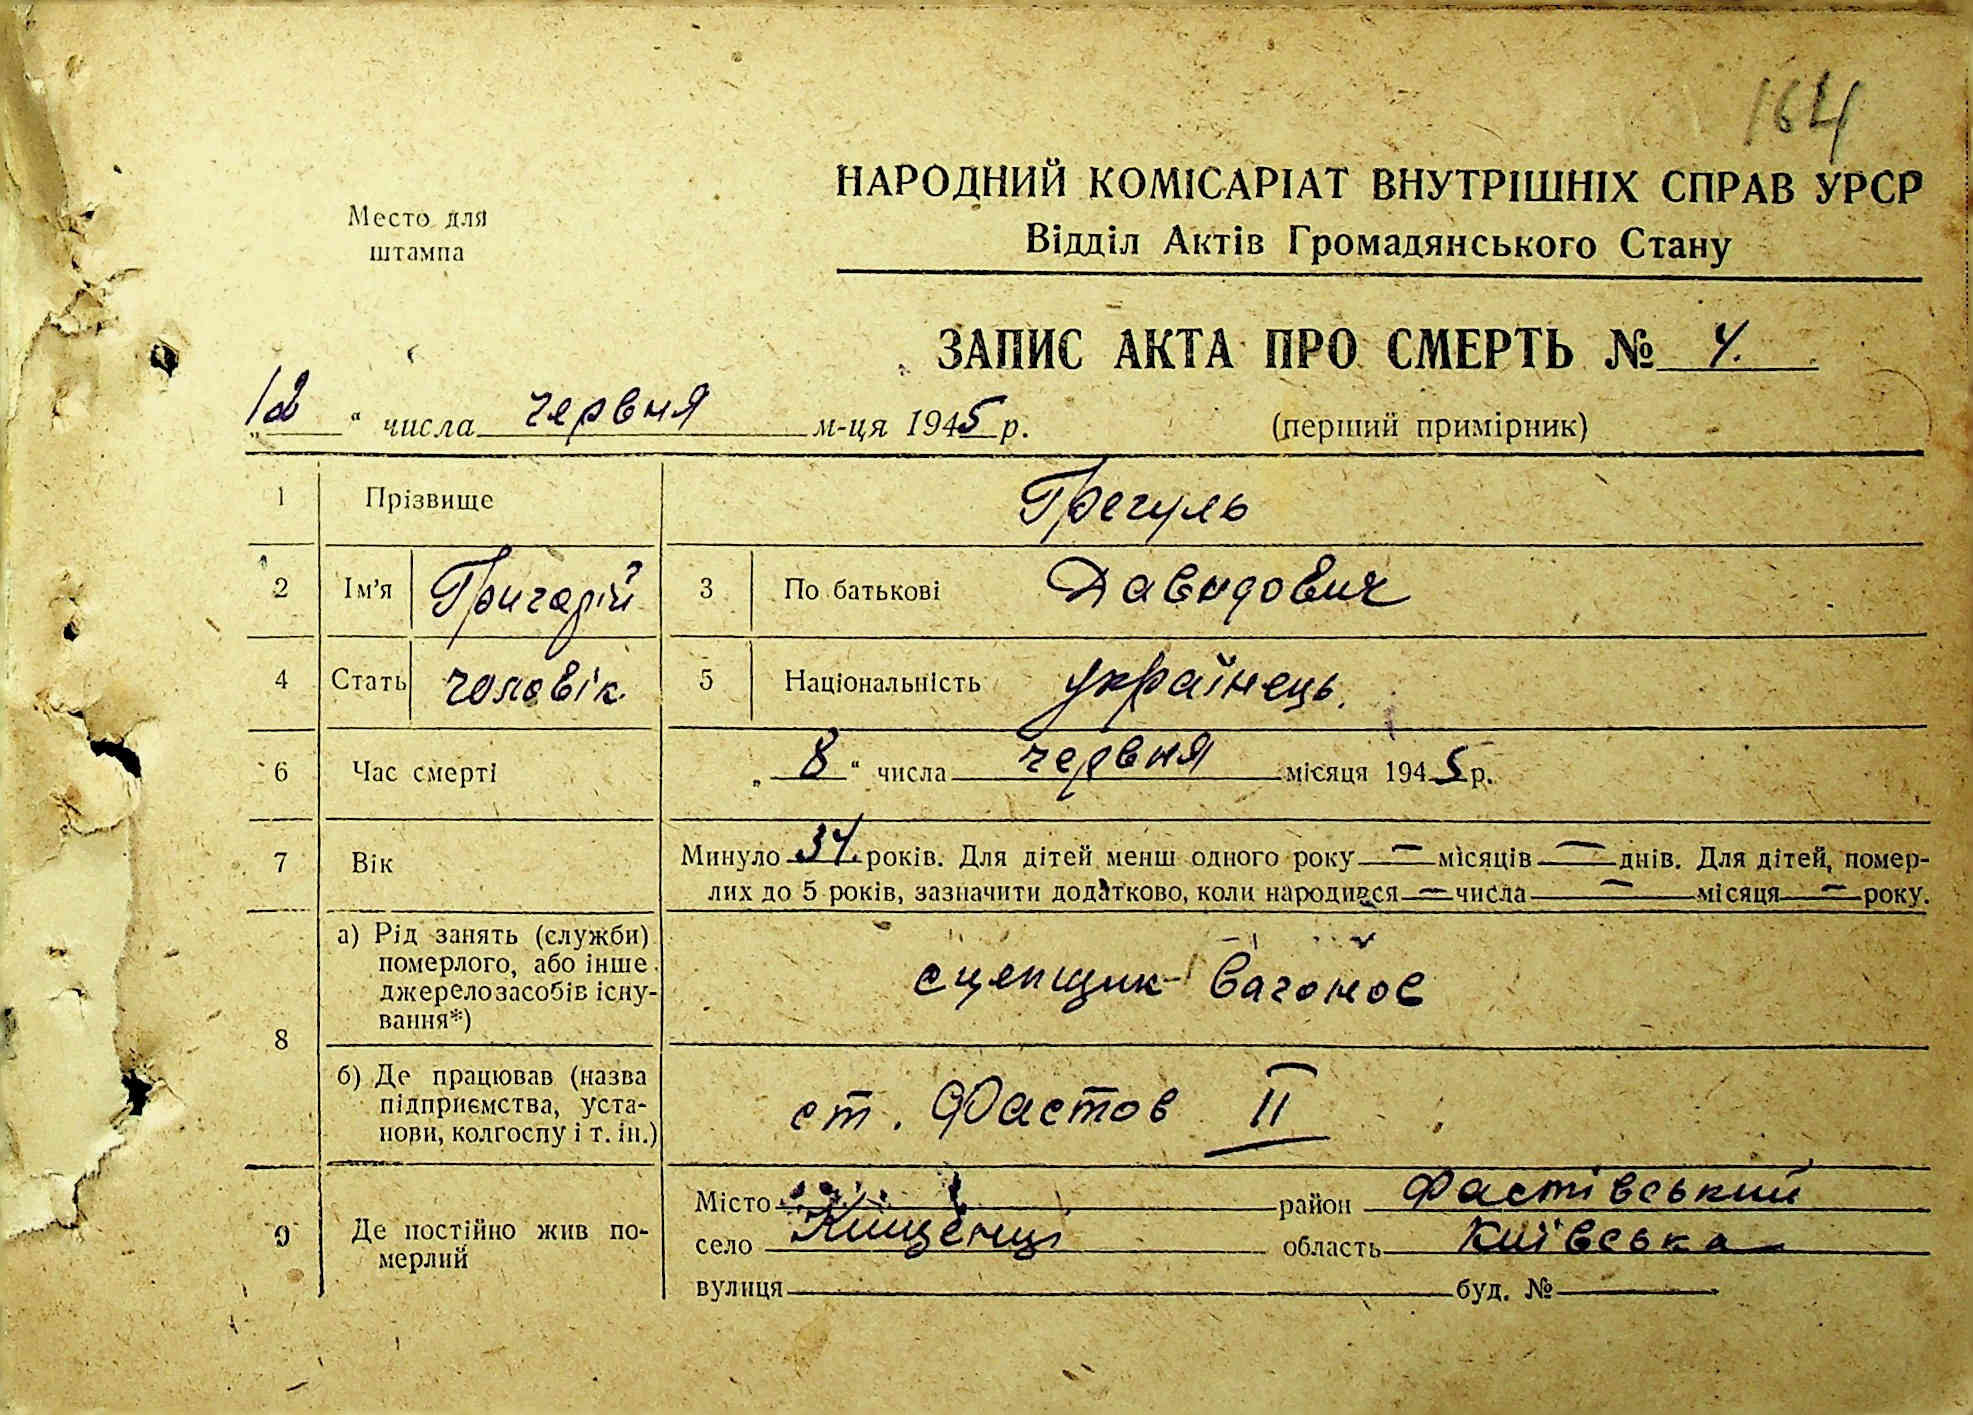 164
Место для
штампа
НАРОДНИЙ КОМІСАРІАТ ВНУТРІШНІХ СПРАВ УРСР
Відділ Актів Громадянського Стану
ЗАПИС АКТА ПРО СМЕРТЬ № 4.
„12“ числа червня м-ця 1945 р. (перший примірник)
1 Прізвище Грегуль
2 Ім'я Григорій 3 По батькові Давидович
4 Стать чоловік. 5 Національність українець.
6 Час смерті „8“ числа червня місяця 1945 р.
7 Вік Минуло 34. років. Для дітей менш одного року — місяців — днів. Для дітей, помер-
лих до 5 років, зазначити додатково, коли народився — числа — місяця — року.
8 а) Рід занять (служби)
померлого, або інше
джерело засобів існу-
вання*)
сцепщик вагонов
б) Де працював (назва
підприємства, уста-
нови, колгоспу і т. ін.)
ст. Фастов II
9 Де постійно жив по-
мерлий
Місто район Фастівський
село область Київська
вулиця буд. №